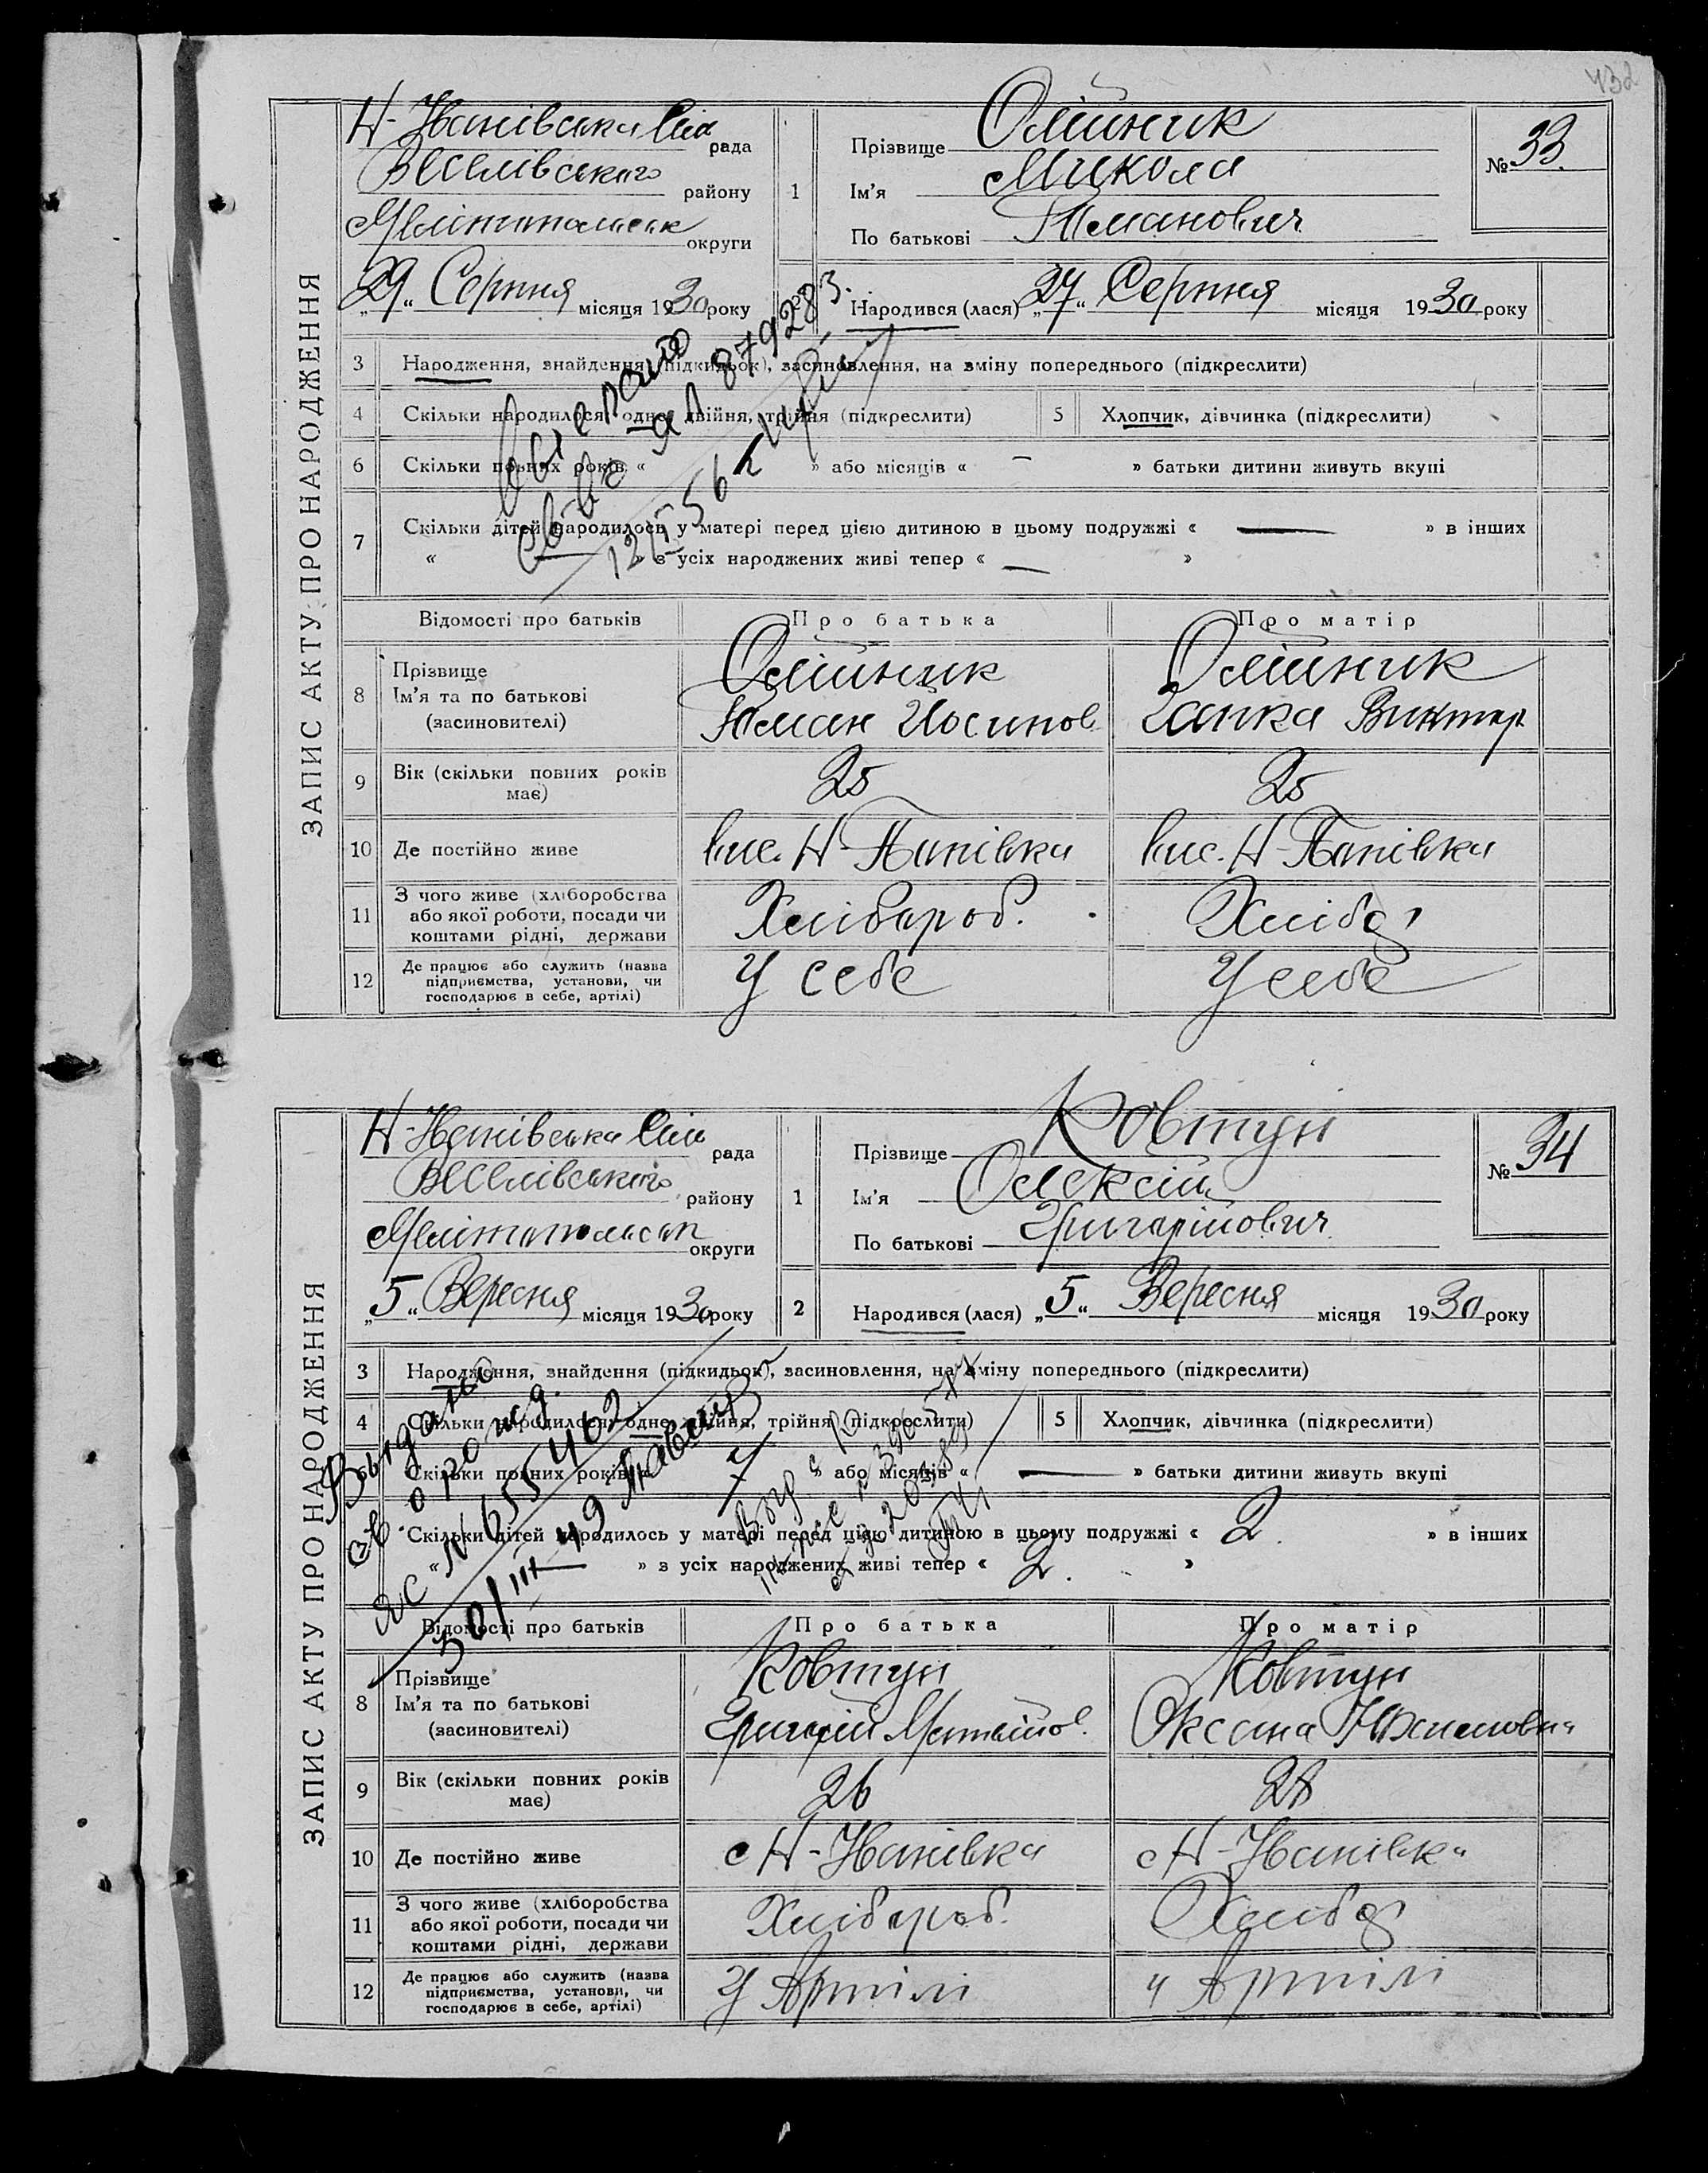 432
ЗАПИС АКТУ ПРО НАРОДЖЕННЯ
Н-Іванівська Сіл рада
Веселівського району
Мелітопольськ округи
„29“ Серпня місяця 1930 року
1
Прізвище Олійник
Ім'я Микола
По батькові
№ 33
Народився (лася) „27“ Серпня місяця 1930 року
3 Народження, знайдення (підкидьок), засиновлення, на зміну попереднього (підкреслити)
4 Скільки народилося: одне, двійня, трійня (підкреслити)
5 Хлопчик, дівчинка (підкреслити)
6 Скільки повних років « » або місяців « — » батьки дитини живуть вкупі
7 Скільки дітей народилось у матері перед цією дитиною в цьому подружжі « — » в інших
« — » з усіх народжених живі тепер « — »
879283.
Відомості про батьків Про батька Про матір
8 Прізвище
Ім'я та по батькові
(засиновителі)
Олійник
Йосипов
Олійник
Ганка Виктор
9 Вік (скільки повних років
має)
25
25
10 Де постійно живе
вис. Н-
вис. Н-
11 З чого живе (хліборобства
або якої роботи, посади чи
коштами рідні, держави
Хлібороб.
Хлібор
12 Де працює або служить (назва
підприємства, установи, чи
господарює в себе, артілі)
У себе
У себе
ЗАПИС АКТУ ПРО НАРОДЖЕННЯ
Н-Іванівська Сіл рада
Веселівського району
Мелітопольськ округи
„5“ Вересня місяця 1930 року
1
Прізвище Ковтун
Ім'я Олексій
По батькові Григорійович
№ 34
2 Народився (лася) „5“ Вересня місяця 1930 року
3 Народження, знайдення (підкидьок), засиновлення, на зміну попереднього (підкреслити)
4 Скільки народилося: одне, двійня, трійня (підкреслити)
5 Хлопчик, дівчинка (підкреслити)
Скільки повних років « 7 » або місяців « — » батьки дитини живуть вкупі
Скільки дітей народилось у матері перед цією дитиною в цьому подружжі « 2 » в інших
« — » з усіх народжених живі тепер « 2. »
Выдано
св. о рожд.
ЯС № 655462
30/III 49
Відомості про батьків Про батька Про матір
8 Прізвище
Ім'я та по батькові
(засиновителі)
Ковтун
Григорій Матвійов.
Ковтун
Оксана
9 Вік (скільки повних років
має)
26
28
10 Де постійно живе
с Н-Іванівка
с Н-Іванівка
11 З чого живе (хліборобства
або якої роботи, посади чи
коштами рідні, держави
Хлібороб.
Хлібор
12 Де працює або служить (назва
підприємства, установи, чи
господарює в себе, артілі)
У Артілі
У Артілі